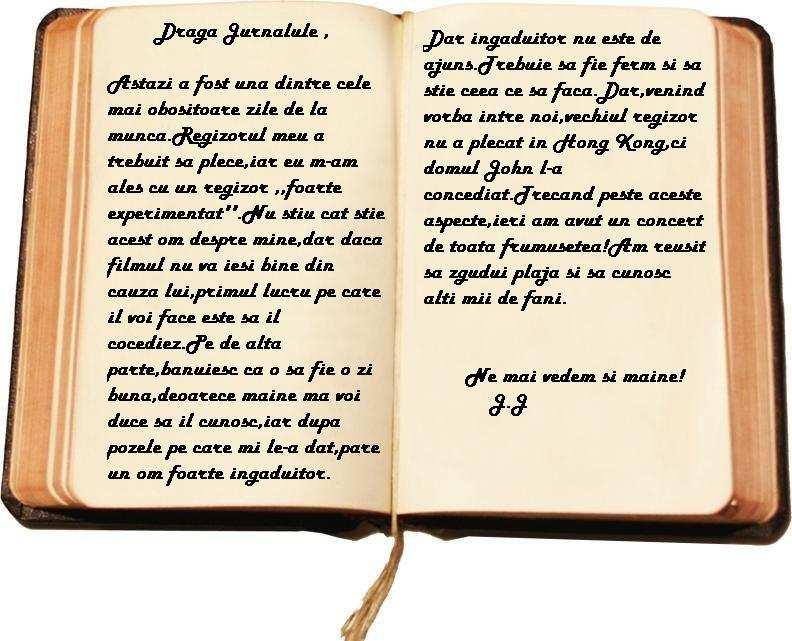 Draga Jurnalule ,
Astazi a fost una dintre cele
mai obositoare zile de la
munca.Regizorul meu a
trebuit sa plece,iar eu m-am
ales cu un regizor ,,foarte
experimentat".Nu stiu cat stie
acest om despre mine,dar daca
filmul nu va iesi bine din
cauza lui,primul lucru pe care
il voi face este sa il
cocediez.Pe de alta
parte,banuiesc ca o sa fie o zi
buna,deoarece maine ma voi
duce sa il cunosc,iar dupa
pozele pe care mi le-a dat,pare
un om foarte ingaduitor.
Dar ingaduitor nu este de
ajuns.Trebuie sa fie ferm si sa
stie ceea ce sa faca.Dar,venind
vorba intre noi,vechiul regizor
nu a plecat in Hong Kong,ci
domul John l-a
concediat.Trecand peste aceste
aspecte,ieri am avut un concert
de toata frumusetea!Am reusit
sa zgudui plaja si sa cunosc
alti mii de fani.
Ne mai vedem si maine!
J.J